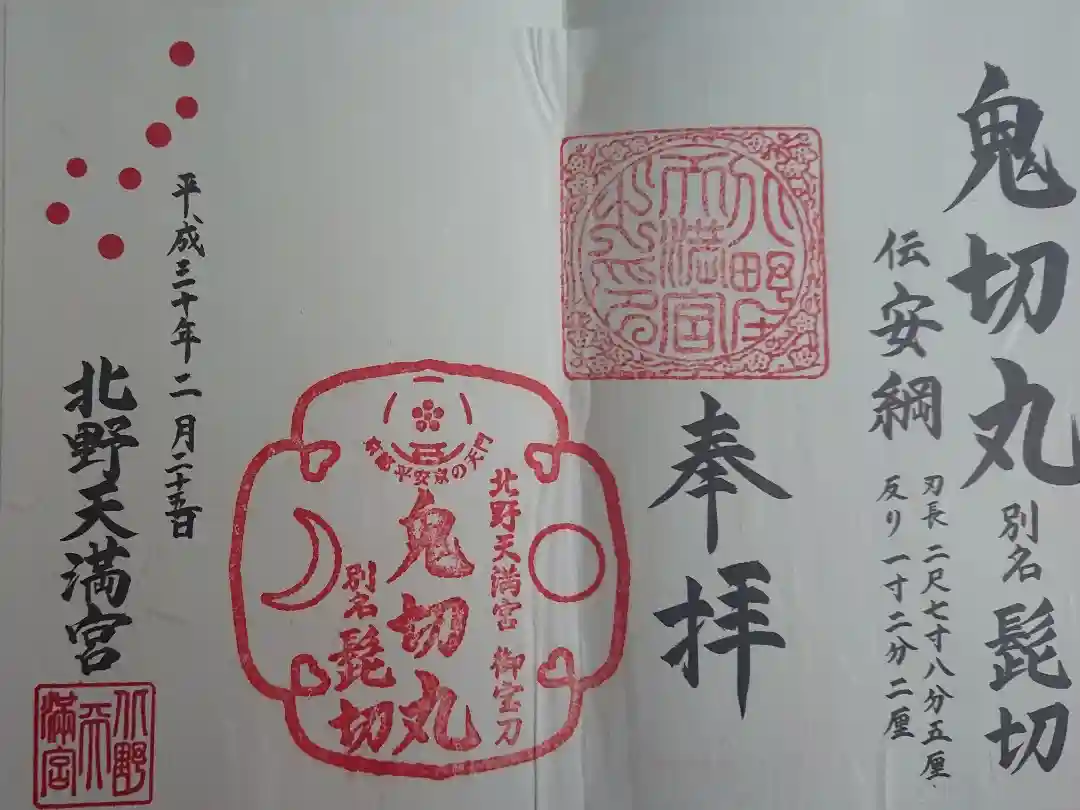 鬼切丸 別名 髭切
伝安綱
刃長 二尺七寸八分五厘
反り 一寸二分二厘
奉拝
北野天満宮 御宝刀
鬼切丸
別名 髭切
平安京の天門
平成三十年二月二十五日
北野天満宮
北野天満宮